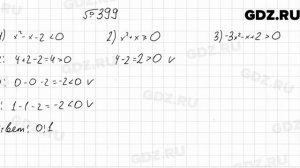 GDZ.RU
№ 399
1) x² - x - 2 < 0 2) x² + x ≥ 0 3) -3x² - x + 2 > 0
4 + 2 - 2 = 4 > 0 4 - 2 = 2 > 0 V
0 - 0 - 2 = -2 < 0 V
1 - 1 - 2 = -2 < 0 V
твет: 0; 1
GDZ.RU